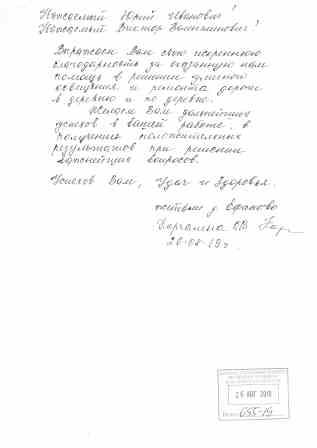 Уважаемый Юрий Иванович!
Уважаемый Виктор Валентинович!
Выражаем Вам свою искреннюю
благодарность за оказанную нам
помощь в решении уличного
освещения и ремонта дороги
в деревню и по деревне.
Желаем Вам дальнейших
успехов в вашей работе, в
получении положительных
результатов при решении
дальнейших вопросов.
Успехов Вам, Удач и Здоровья.
жители д. Ефаново
20-08-19г.
26 АВГ 2019
095-19